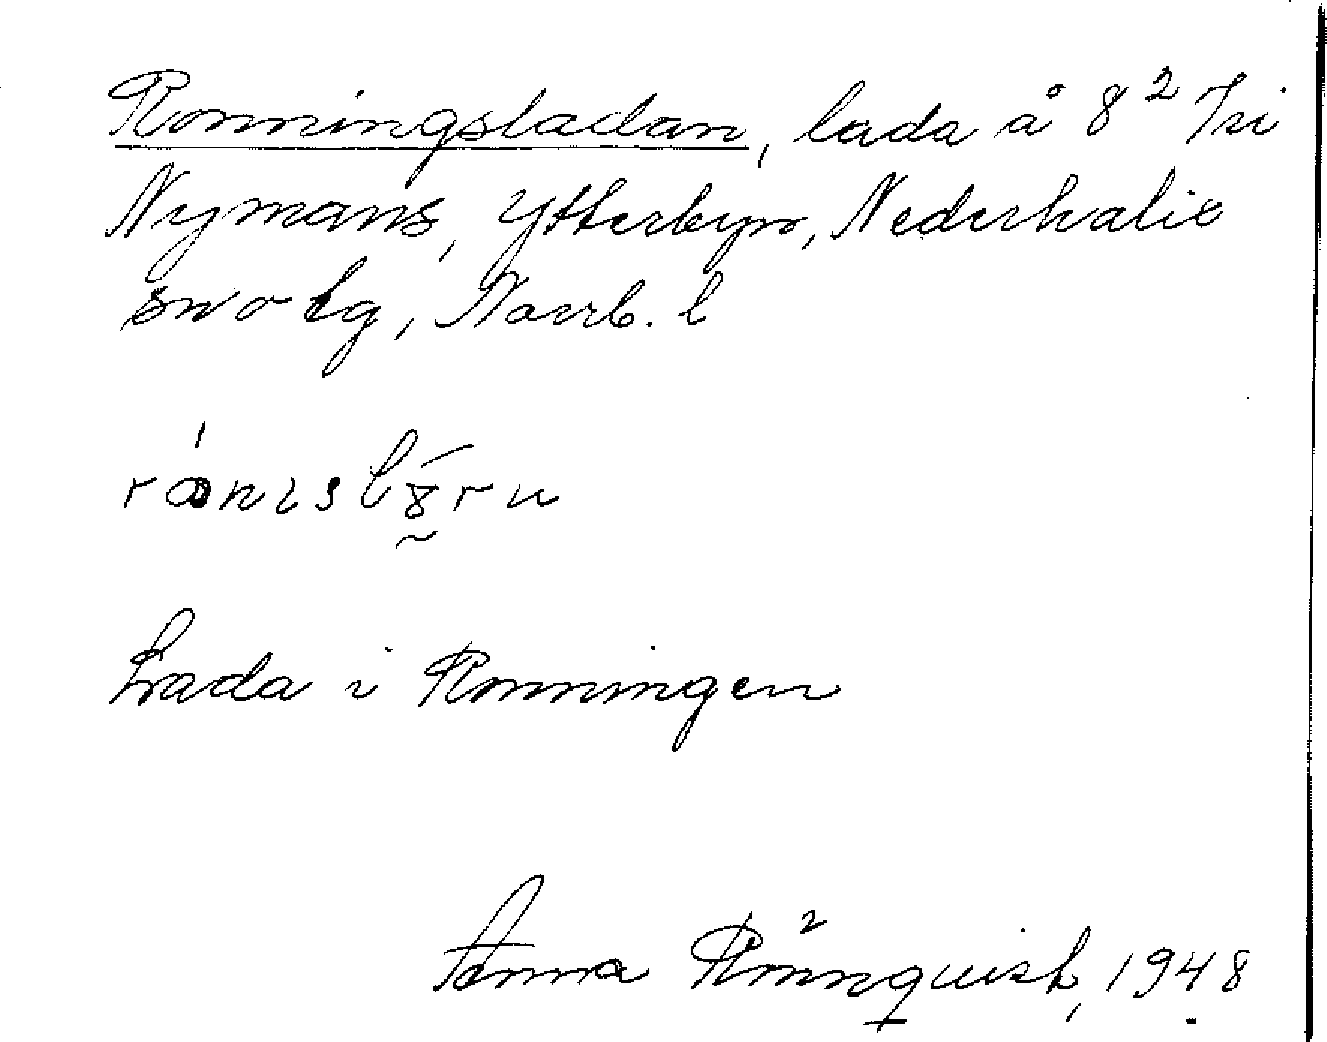 Ronningsladan, lada å 8² /ni
Nymans, Ytterbyn, Nederkalix
sn o tg, Norrb. l
Lada i Ronningen
Anna Rönnquist, 1948